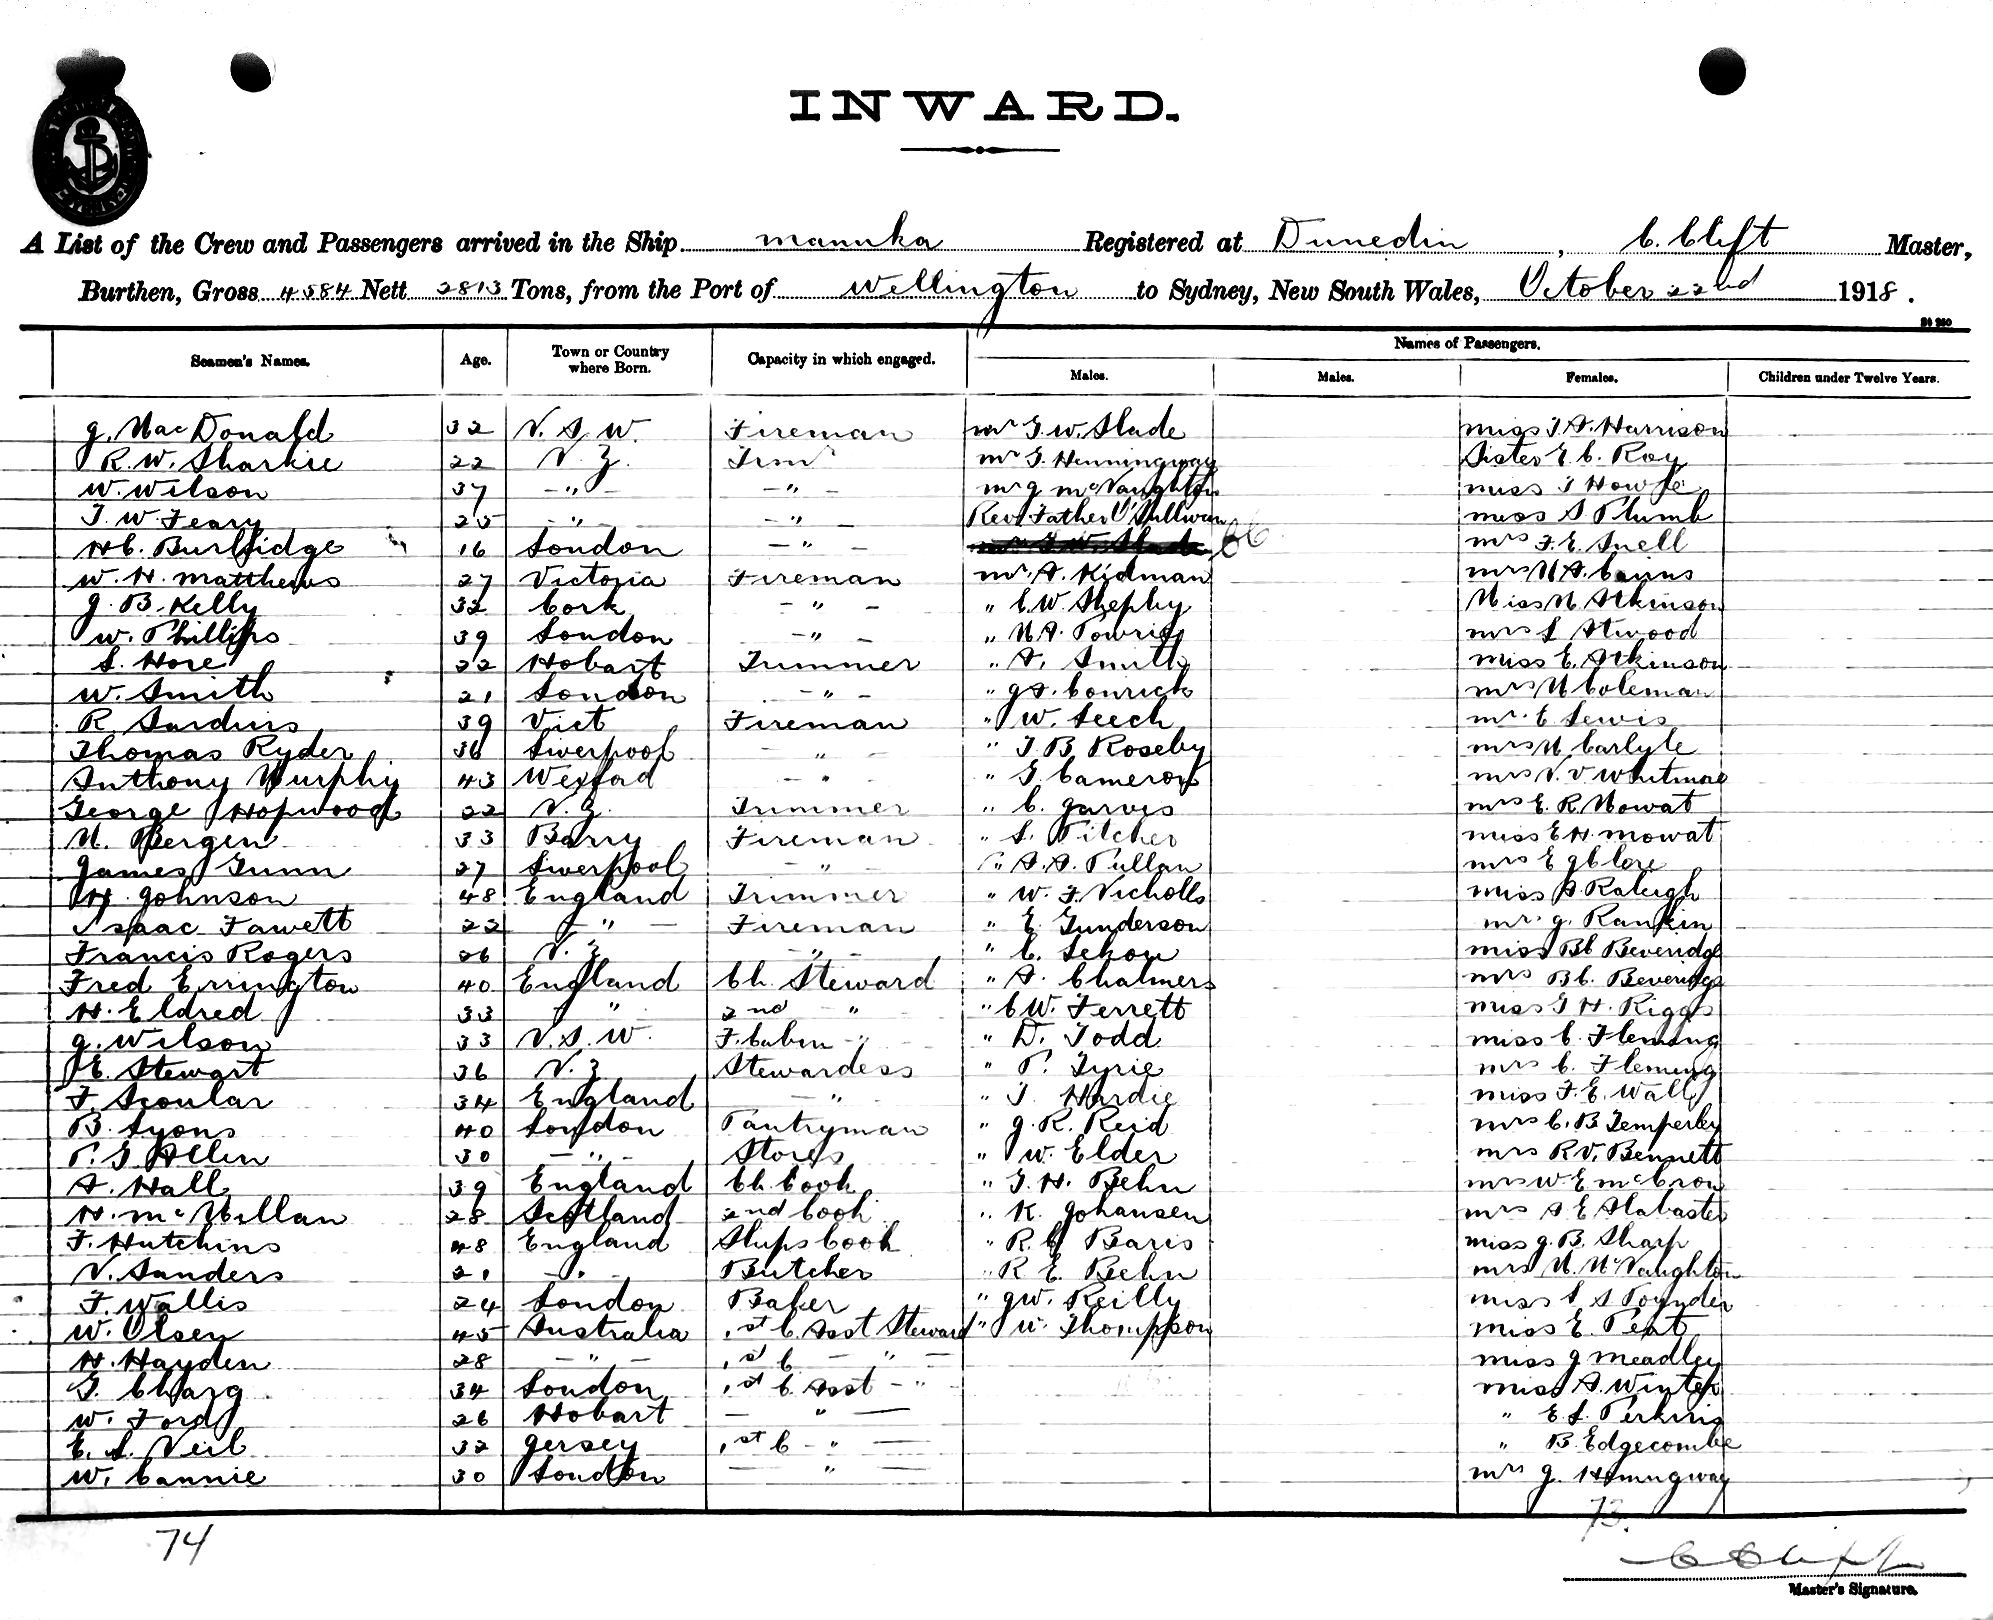 INWARD.
A List of the Crew and Passengers arrived in the Ship manuka Registered at Dunedin, C. Clift Master,
Burthen, Gross 4584 Nett 2813 Tons, from the Port of Wellington to Sydney, New South Wales, October 22nd 1918.
Names of Passengers.
Seamen's Names. Age. Town or Country where Born. Capacity in which engaged. Males. Males. Females. Children under Twelve Years.
J. MacDonald 32 N.S.W. Fireman mr T.W. Slade miss J.A. Harrison
R.W. Sharkie 22 N.Z. Trimr mr G. Henningway Sister E.C. Roy
W. Wilson 37 " " mr J McNaughton miss
T.W. Feary 25 " " Rev Father O'Sullivan miss S Plumb
H C. Burbidge 16 London " mrs F.E. Snell
W.H. Matthews 27 Victoria Fireman mr A. Kidman mrs
J.B. Kelly 32 Cork " " Miss M Atkinson
W. Phillips 39 London " " mrs L Atwood
L. Hore 22 Hobart Trimmer " A. Smith miss E. Atkinson
W. Smith 21 London " " mrs M Coleman
R 39 Vict Fireman " W. Leech mr E Lewis
Thomas Ryder 36 Liverpool " " T.B. Roseby mrs M Carlyle
Anthony Murphy 43 Wexfad " " G. Cameron mrs V.V. Whitmae
George Hopwood 22 N.Z. Trimmer " C. Jarvis mrs E.R. Mowat
M. Bergen 33 Barry Fireman " L. Pilcher miss E H. Mowat
James Gunn 27 Liverpool " " A.A. Pullan mrs E
H. Johnson 48 England Trimmer " W. F. Nicholls miss A Raleigh
Isaac Fawett 22 " Fireman " E. Gunderson mr J. Rankin
Francis Rogers 26 N.Z " " C. miss BC Beveridge
Fred Errington 40 England Ch. Steward " A. Chalmers mrs BC. Beveridge
H. Eldred 33 " 2nd " " C W. Ferrett miss G H. Riggs
J. Wilson 33 N.S.W. F. Cabin " " D. Todd miss C. Fleming
E. Stewart 36 N.Z Stewardess " P. Tyrie mrs C. Fleming
F. Scoular 34 England " " J Hardie miss F.E. Wall
B. Lyons 40 London Pantryman " J.R. Reid mrs C.B Temperley
P.G. Allen 30 " Stores " W. Elder mrs R.V. Bennett
A. Hall 39 England Ch. Cook " T.H. Behn mrs W E McCrow
H. McMillan 28 Scotland 2nd Cook " K. Johansen mrs A E Alabaster
F. Hutchins 48 England Ships Cook " R. C Baris miss J.B. Sharp
N. Sanders 21 " Butcher " R E. Behn mrs M. McNaughton
F. Wallis 24 London Baker " JW. Reilly miss L A Poynder
W. Olsen 45 Australia 1st C Asst Steward " W. Thompson miss E. Peat
H. Hayden 28 " 1st C " miss J Meadley
G. Chazg 34 London 1st C Asst " miss A. Winter
W. Ford 26 Hobart " " E L. Perkins
E. L. Neil 32 Jersey 1st C " " B. Edgecombe
W. Cannie 30 London " mrs J. Hemingway
66
73.
74
Master's Signature.